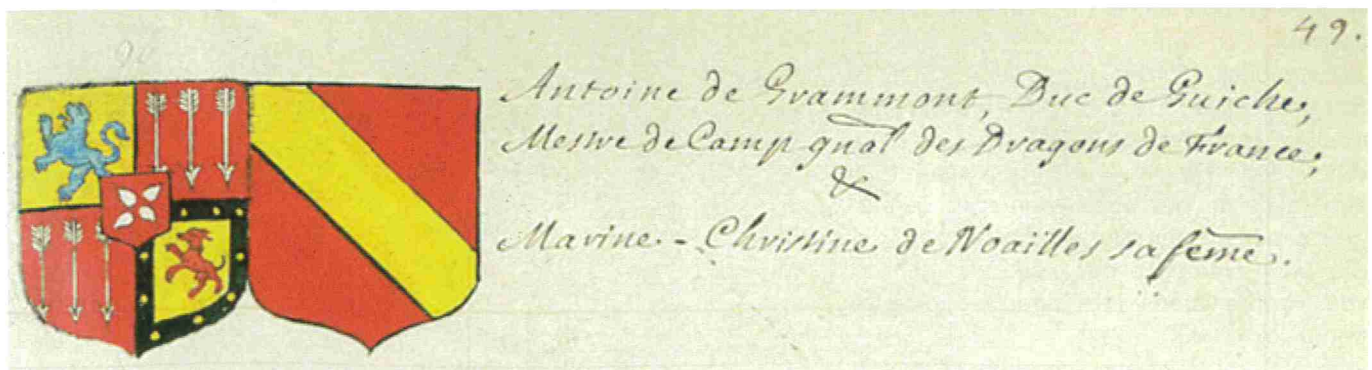 49.
Antoine de Grammont, Duc de Guiche,
Mestre de Camp gnãl des Dragons de France,
&
Marine-Christine de Noailles sa fem̃e.